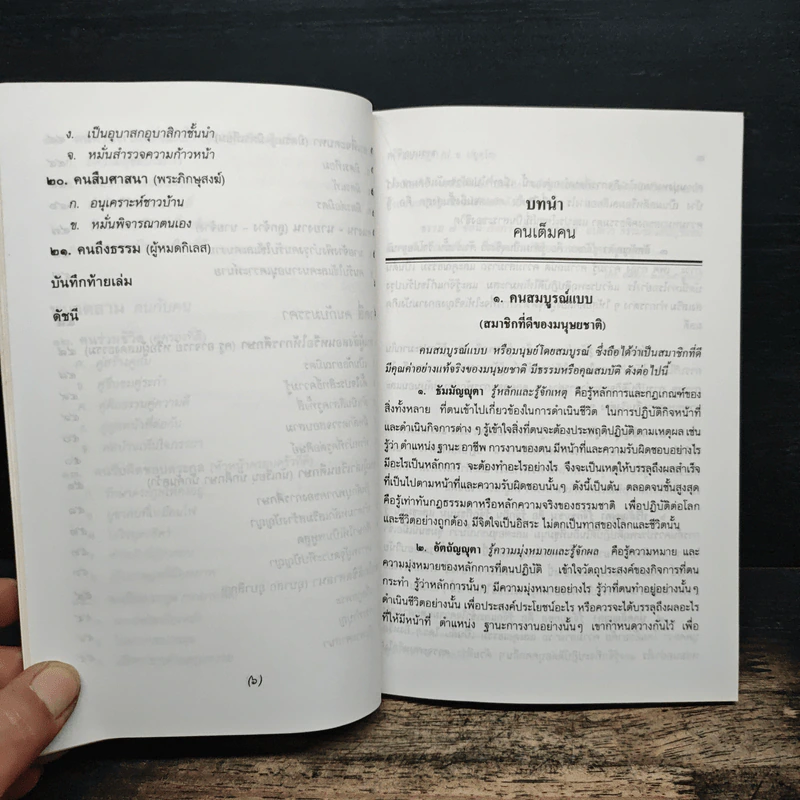 ง. เป็นอุบาสกอุบาสิกาชั้นนำ
จ. หมั่นสำรวจความก้าวหน้า
๒๐. คนสืบศาสนา (พระภิกษุสงฆ์)
ก. อนุเคราะห์ชาวบ้าน
ข. หมั่นพิจารณาตนเอง
๒๑. คนถึงธรรม (ผู้หมดกิเลส)
บันทึกท้ายเล่ม
ดัชนี
(๖)
บทนำ
คนเต็มคน
๑. คนสมบูรณ์แบบ
(สมาชิกที่ดีของมนุษยชาติ)
คนสมบูรณ์แบบ หรือมนุษย์โดยสมบูรณ์ ซึ่งถือได้ว่าเป็นสมาชิกที่ดี
มีคุณค่าอย่างแท้จริงของมนุษยชาติ มีธรรมหรือคุณสมบัติ ดังต่อไปนี้
๑. ธัมมัญญุตา รู้หลักและรู้จักเหตุ คือรู้หลักการและกฎเกณฑ์ของ
สิ่งทั้งหลาย ที่ตนเข้าไปเกี่ยวข้องในการดำเนินชีวิต ในการปฏิบัติกิจหน้าที่
และดำเนินกิจการต่าง ๆ รู้เข้าใจสิ่งที่ตนจะต้องประพฤติปฏิบัติ ตามเหตุผล เช่น
รู้ว่า ตำแหน่ง ฐานะ อาชีพ การงานของตน มีหน้าที่และความรับผิดชอบอย่างไร
มีอะไรเป็นหลักการ จะต้องทำอะไรอย่างไร จึงจะเป็นเหตุให้บรรลุถึงผลสำเร็จ
ที่เป็นไปตามหน้าที่และความรับผิดชอบนั้นๆ ดังนี้เป็นต้น ตลอดจนชั้นสูงสุด
คือรู้เท่าทันกฎธรรมดาหรือหลักความจริงของธรรมชาติ เพื่อปฏิบัติต่อโลก
และชีวิตอย่างถูกต้อง มีจิตใจเป็นอิสระ ไม่ตกเป็นทาสของโลกและชีวิตนั้น
๒. อัตถัญญุตา รู้ความมุ่งหมายและรู้จักผล คือรู้ความหมาย และ
ความมุ่งหมายของหลักการที่ตนปฏิบัติ เข้าใจวัตถุประสงค์ของกิจการที่ตน
กระทำ รู้ว่าหลักการนั้นๆ มีความมุ่งหมายอย่างไร รู้ว่าที่ตนทำอยู่อย่างนั้นๆ
ดำเนินชีวิตอย่างนั้น เพื่อประสงค์ประโยชน์อะไร หรือควรจะได้บรรลุถึงผลอะไร
ที่ให้มีหน้าที่ ตำแหน่ง ฐานะการงานอย่างนั้นๆ เขากำหนดวางกันไว้ เพื่อ